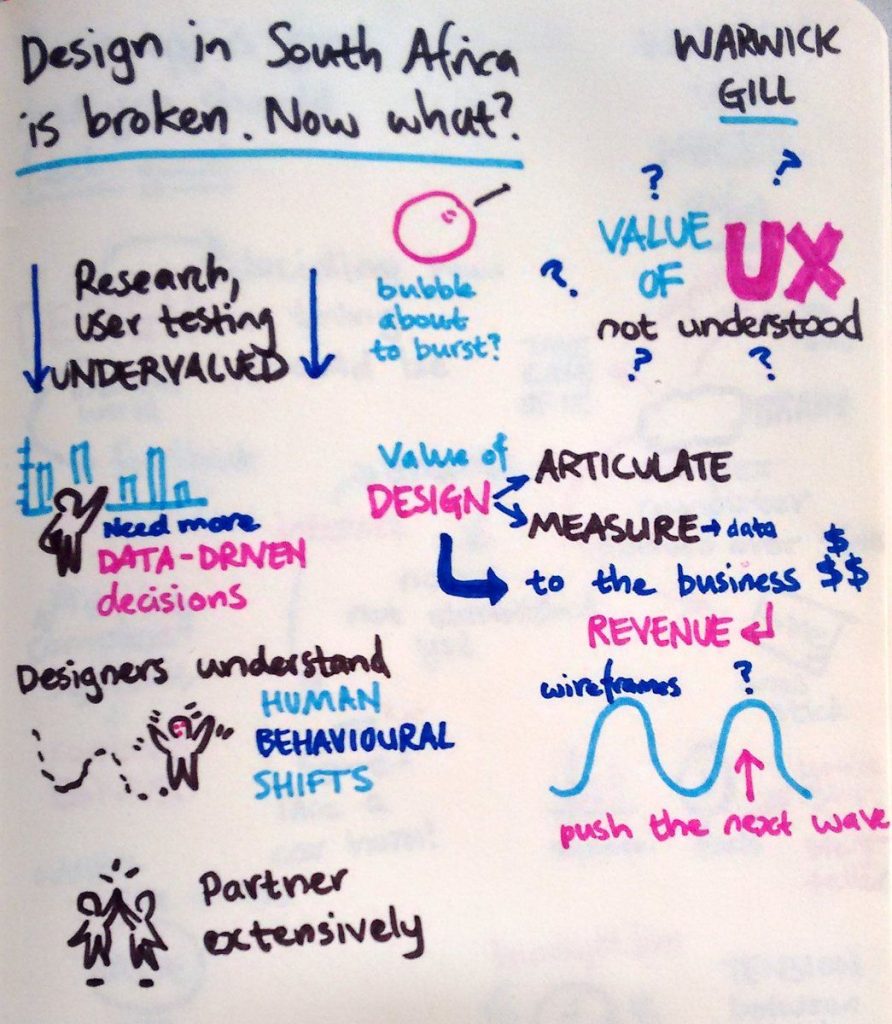 Design in South Africa
is broken. Now what?
WARWICK
GILL
Research,
user testing
UNDERVALUED
bubble
about
to burst?
? ?
VALUE
OF UX
?
not understood
? ?
Need more
DATA-DRIVEN
decisions
Value of
DESIGN
ARTICULATE
MEASURE → data
to the business $ $$
REVENUE
Designers understand
HUMAN
BEHAVIOURAL
SHIFTS
wireframes ?
push the next wave
Partner
extensively